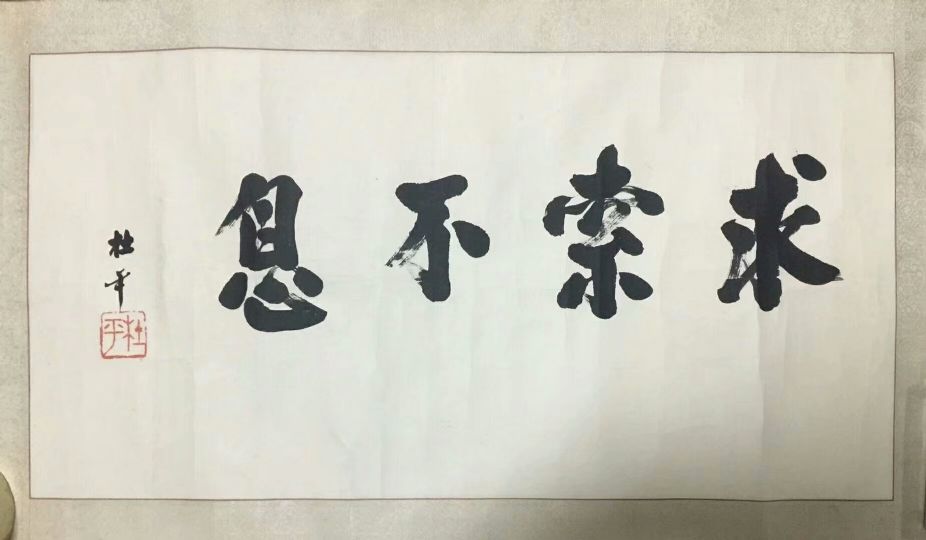 求索不息
杜平
杜平